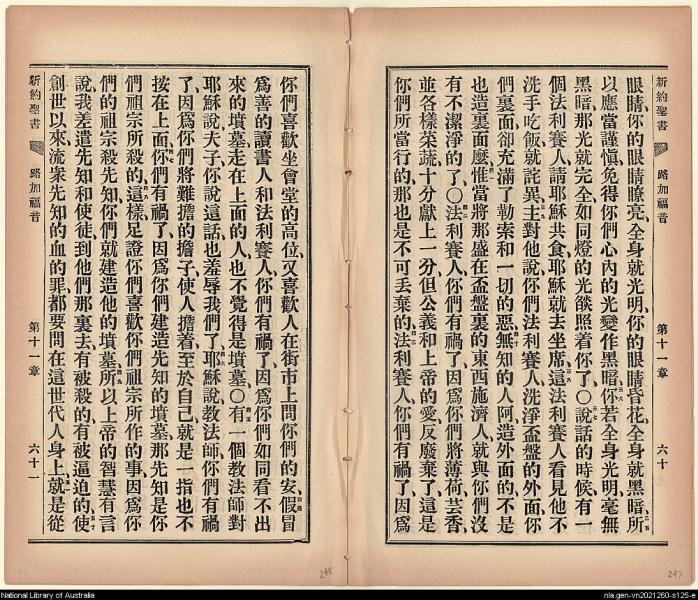 新約聖書 路加福音 第十一章 六十
眼睛、你的眼睛瞭亮、全身就光明、你的眼睛昏花、全身就黑暗、所
以應當謹愼、免得你們心內的光、變作黑暗、你若全身光明、毫無
黑暗、那光就完全、如同燈的光燄照着你了、〇說話的時候、有一
個法利賽人、請耶穌共食、耶穌就去坐席、這法利賽人看見他不
洗手吃飯、就詫異、主對他說、你們法利賽人、洗淨盃盤的外面、你
們裏面卻充滿了勒索和一切的惡、無知的人阿、造外面的、不是
也造裏面麼、惟當將那盛在盃盤裏的東西施濟人、就與你們沒
有不潔淨的了、〇法利賽人、你們有禍了、因爲你們將薄荷、芸香、
並各樣菜蔬、十分獻上一分、但公義和上帝的愛、反廢棄了、這是
你們所當行的、那也是不可丟棄的、法利賽人、你們有禍了、因爲
你們喜歡坐會堂的高位、又喜歡人在街市上問你們的安、假冒
爲善的讀書人和法利賽人、你們有禍了、因爲你們如同看不出
來的墳墓、走在上面的人、也不覺得是墳墓、〇有一個教法師對
耶穌說、夫子、你說這話、也羞辱我們了、耶穌說、教法師、你們有禍
了、因爲你們將難擔的擔子、使人擔着、至於自己、就是一指也不
按在上面、你們有禍了、因爲你們建造先知的墳墓、那先知是你
們祖宗所殺的、這樣足證你們喜歡你們祖宗所作的事、因爲你
們的祖宗殺先知、你們就建造他的墳墓、所以上帝的智慧有言
說、我差遣先知和使徒到他們那裏去、有被殺的、有被逼迫的、使
創世以來、流衆先知的血的罪、都要問在這世代人身上、就是從
新約聖書 路加福音 第十一章 六十一
248
247
National Library of Australia
nla.gen-vn2021260-s125-e